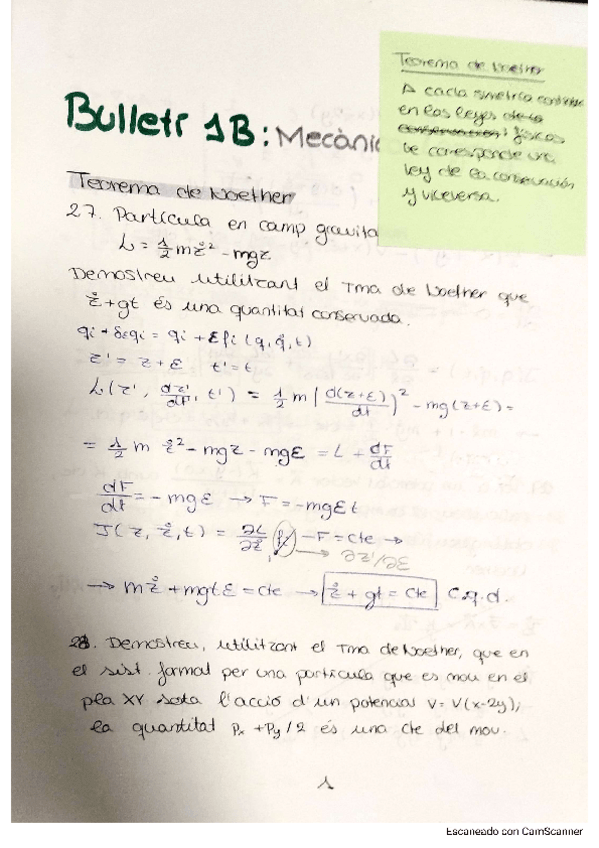 Teorema de Noether
A cada simetría continua
en las leyes de la
físicas
le corresponde una
ley de la conservación
y viceversa.
Butlletí 1B: Mecànic
Teorema de Noether
27. Partícula en camp gravita
L = 1/2 mż² - mgz
Demostreu utilitzant el Tma de Noether que
ż + gt és una quantitat conservada.
qi + δεqi = qi + εfi (q, q̇, t)
z' = z + ε t' = t
L(z', dz'/dt', t') = 1/2 m (d(z+ε)/dt)² - mg(z+ε) =
= 1/2 m ż² - mgz - mgε = L + dF/dt
dF/dt = - mgε → F = -mgεt
J(z, ż, t) = ∂L/∂ż fi - F = cte →
→ ∂z'/∂ε
→ mż + mgtε = cte → ż + gt = cte c.q.d.
28. Demostreu, utilitzant el Tma de Noether, que en
el sist. format per una partícula que es mou en el
pla XY sota l'acció d'un potencial V = V(x-2y),
la quantitat Px + Py/2 és una cte del mov.
1
Escaneado con CamScanner